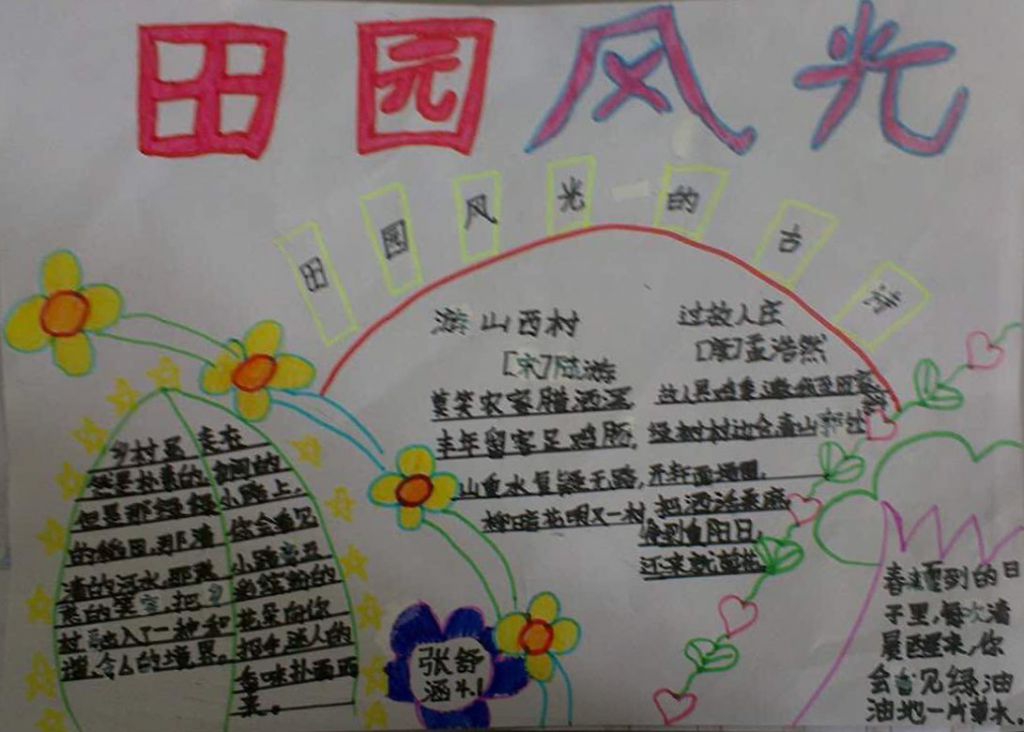 田园风光
田园风光的古诗
游山西村
[宋]陆游
莫笑农家腊酒浑
丰年留客足鸡豚,
山重水复疑无路,
柳暗花明又一村
过故人庄
[唐]孟浩然
故人具鸡黍邀我至田家
绿树村边合青山郭外
开轩面场圃,
把酒话桑麻
待到重阳日,
还来就菊花.
乡村虽
然是朴素的,
但是那绿绿
的稻田,那清
清的河水,那
的笑,把
村融入了一种和
谐,令人的境界.
走在
的
小路上,
你会看见
小路旁五
彩缤纷的
花朵向你
招手,迷人的
香味扑面而
来.
张舒
涵4.1
春到的日
子里,每次清
晨醒来,你
会看见绿油
油地一片草木.